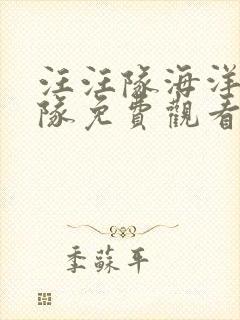 汪汪隊海洋
隊免費觀看
季蘇平